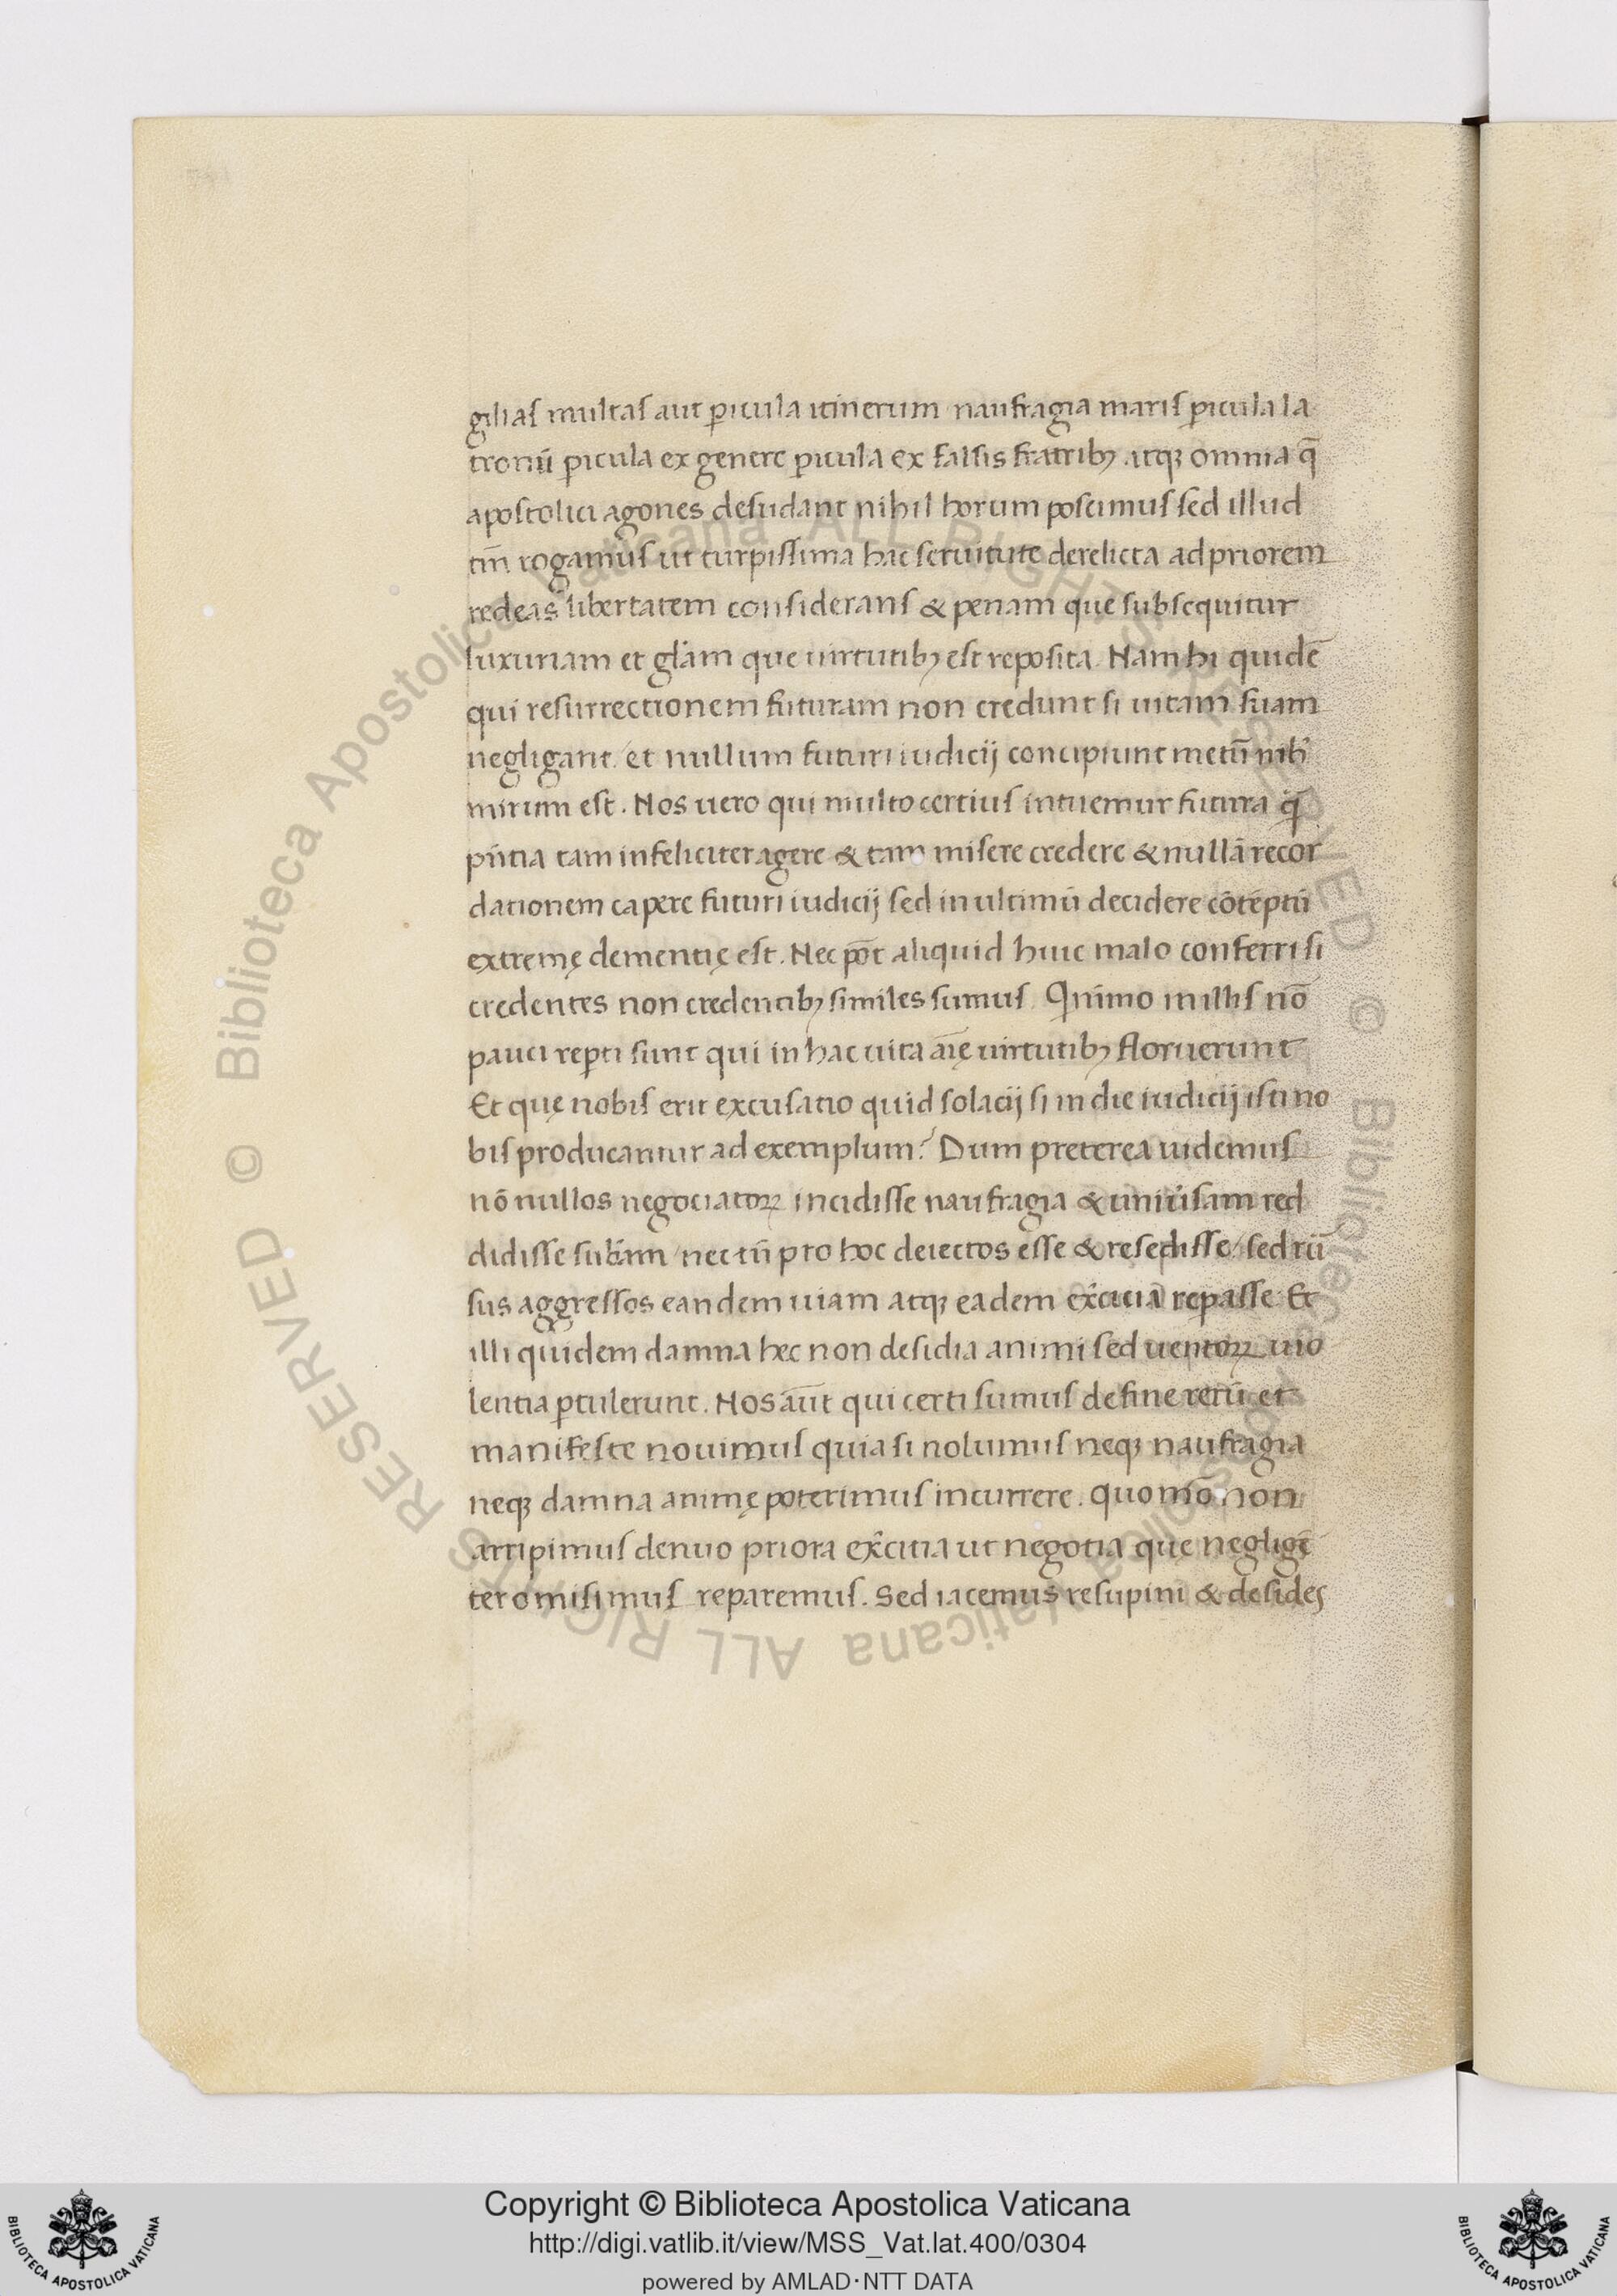 gilias multas aut ꝑicula itinerum naufragia maris ꝑicula la
tronū ꝑicula ex genere ꝑicula ex falsis fratribꝫ atqꝫ omnia q̄
apostolici agones desudant nihil horum poscimus sed illud
tm̄ rogamus ut turpissima hac seruitute derelicta ad priorem
redeas libertatem considerans & penam que subsequitur
luxuriam et gl̄am que uirtutibꝫ est reposita. Nam hi quidē
qui resurrectionem futuram non credunt si uitam suam
negligant / et nullum futuri iudicij concipiunt metū nih̓
mirum est. Nos uero qui multo certius intuemur futura q̄
pn̄tia tam infeliciter agere & tam misere credere & nullā recor
dationem capere futuri iudicij sed in ultimū decidere cōtēptū
extremę dementię est. Nec pōt aliquid huic malo conferri si
credentes non credentibꝫ similes sumus. Quīimo in illis nō
pauci repti sunt qui in hac uita aīę uirtutibꝫ floruerunt
Et quę nobis erit excusatio quid solacij si in die iudicij isti no
bis producantur ad exemplum? Dum preterea uidemus
nō nullos negociatoꝝ incidisse naufragia & uniu̓sam red
didisse sub̄am / nec tn̄ pro hoc deiectos esse & resedisse / sed rū
sus aggressos eandem uiam atqꝫ eadem ex̓citia repasse. Et
illi quidem damna hec non desidia animi sed uentoꝝ uio
lentia ꝑtulerunt. Nos aūt qui certi sumus de fine rerū et
manifeste nouimus quia si nolumus neqꝫ naufragia
neqꝫ damna animę poterimus incurrere. quomō non
arripimus denuo priora ex̓citia ut negotia que negligē
ter omisimus reparemus. Sed iacemus resupini & desides
© Biblioteca Apostolica Vaticana ALL RIGHTS RESERVED
© Biblioteca Apostolica Vaticana ALL RIGHTS RESERVED
BIBLIOTECA APOSTOLICA VATICANA
Copyright © Biblioteca Apostolica Vaticana
http://digi.vatlib.it/view/MSS_Vat.lat.400/0304
powered by AMLAD·NTT DATA
BIBLIOTECA APOSTOLICA VATICANA